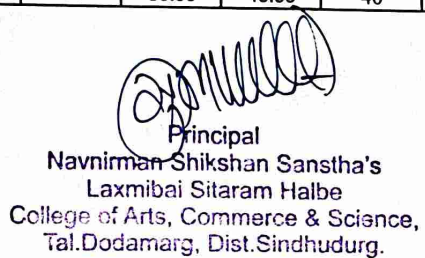 Principal
Navnirman Shikshan Sanstha's
Laxmibai Sitaram Halbe
College of Arts, Commerce & Science,
Tal.Dodamarg, Dist.Sindhudurg.